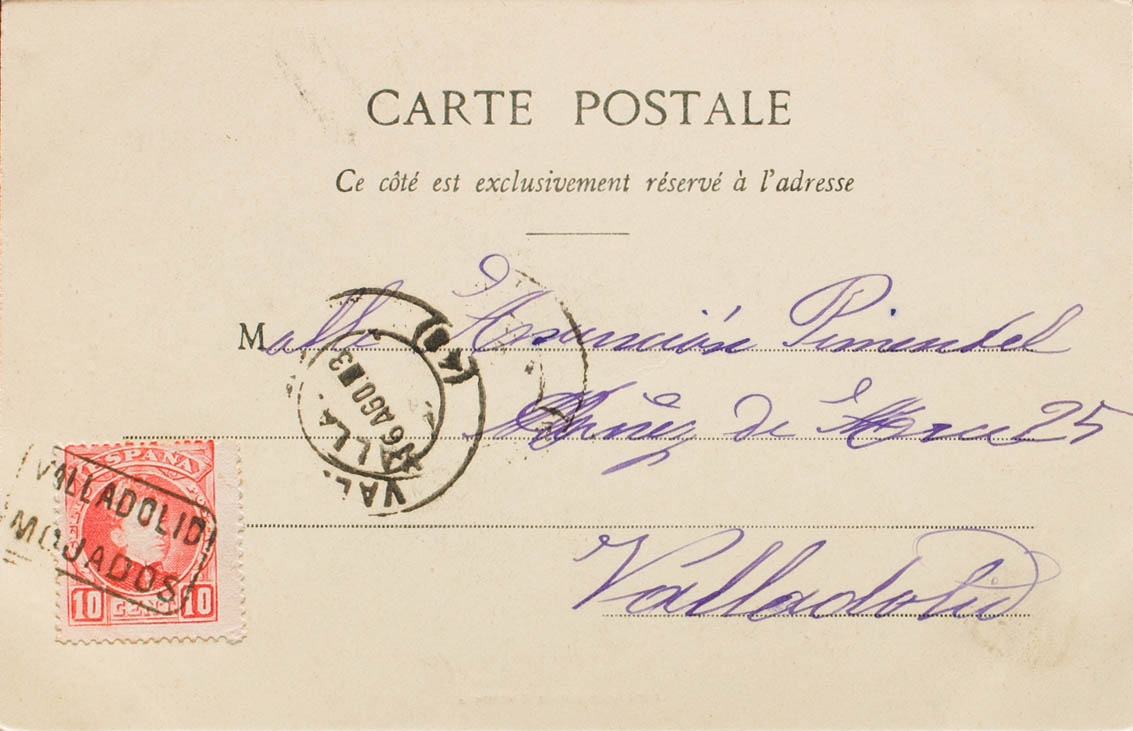 CARTE POSTALE
Ce côté est exclusivement réservé à l'adresse
Malle Asunción Pimentel
Núñez de Arce 25
Valladolid
ESPAÑA
VALLADOLID
MOJADOS
10 CENT 10
VALLA
6 AGO 03
(4